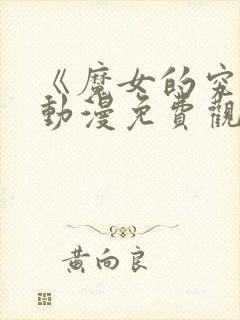 《魔女的究
動漫免費觀
黄向良